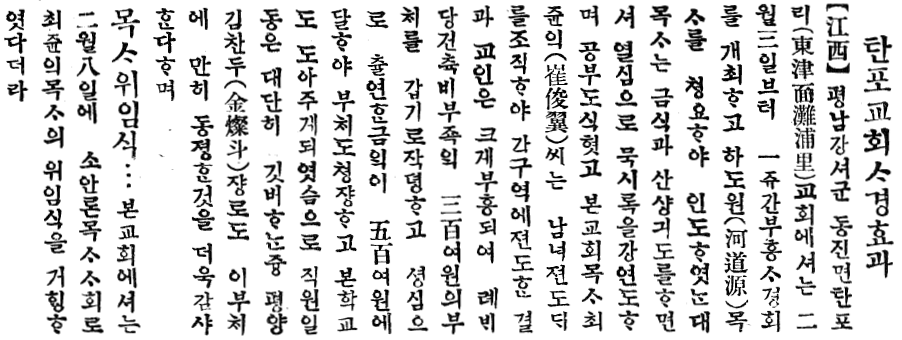 탄포교회ᄉᆞ경효과
【江西】 평남강셔군 동진면탄포
리(東津面灘浦里)교회에셔는 二
월三일브터 一쥬간부흥ᄉᆞ경회
를 개최ᄒᆞ고 하도원(河道源)목
ᄉᆞ를 쳥요ᄒᆞ야 인도ᄒᆞ엿ᄂᆞᆫ대
목ᄉᆞ는 금식과 산샹긔도를ᄒᆞ면
셔 열심으로 묵시록을강연도ᄒᆞ
며 공부도식혓고 본교회목ᄉᆞ최
쥰의(崔俊翼)씨는 남녀젼도ᄃᆡ
를조직ᄒᆞ야 각구역에젼도ᄒᆞᆫ 결
과 교인은 크게부흥되여 례ᄇᆡ
당건축비부족ᄋᆡᆨ 三百여원의부
처를 갑기로작뎡ᄒᆞ고 셩심으
로 출연ᄒᆞᆫ금ᄋᆡᆨ이 五百여원에
달ᄒᆞ야 부처도쳥쟝ᄒᆞ고 본학교
도 도아주게되엿슴으로 직원일
동은 대단히 깃버ᄒᆞᄂᆞᆫ중 평양
김찬두(金燦斗)쟝로도 이부처
에 만히 동졍ᄒᆞᆫ것을 더욱감샤
ᄒᆞᆫ다ᄒᆞ며
목ᄉᆞ위임식…본교회에셔는
二월八일에 소안론목ᄉᆞᄉᆞ회로
최쥰의목ᄉᆞ의 위임식을 거ᄒᆡᆼᄒᆞ
엿다더라